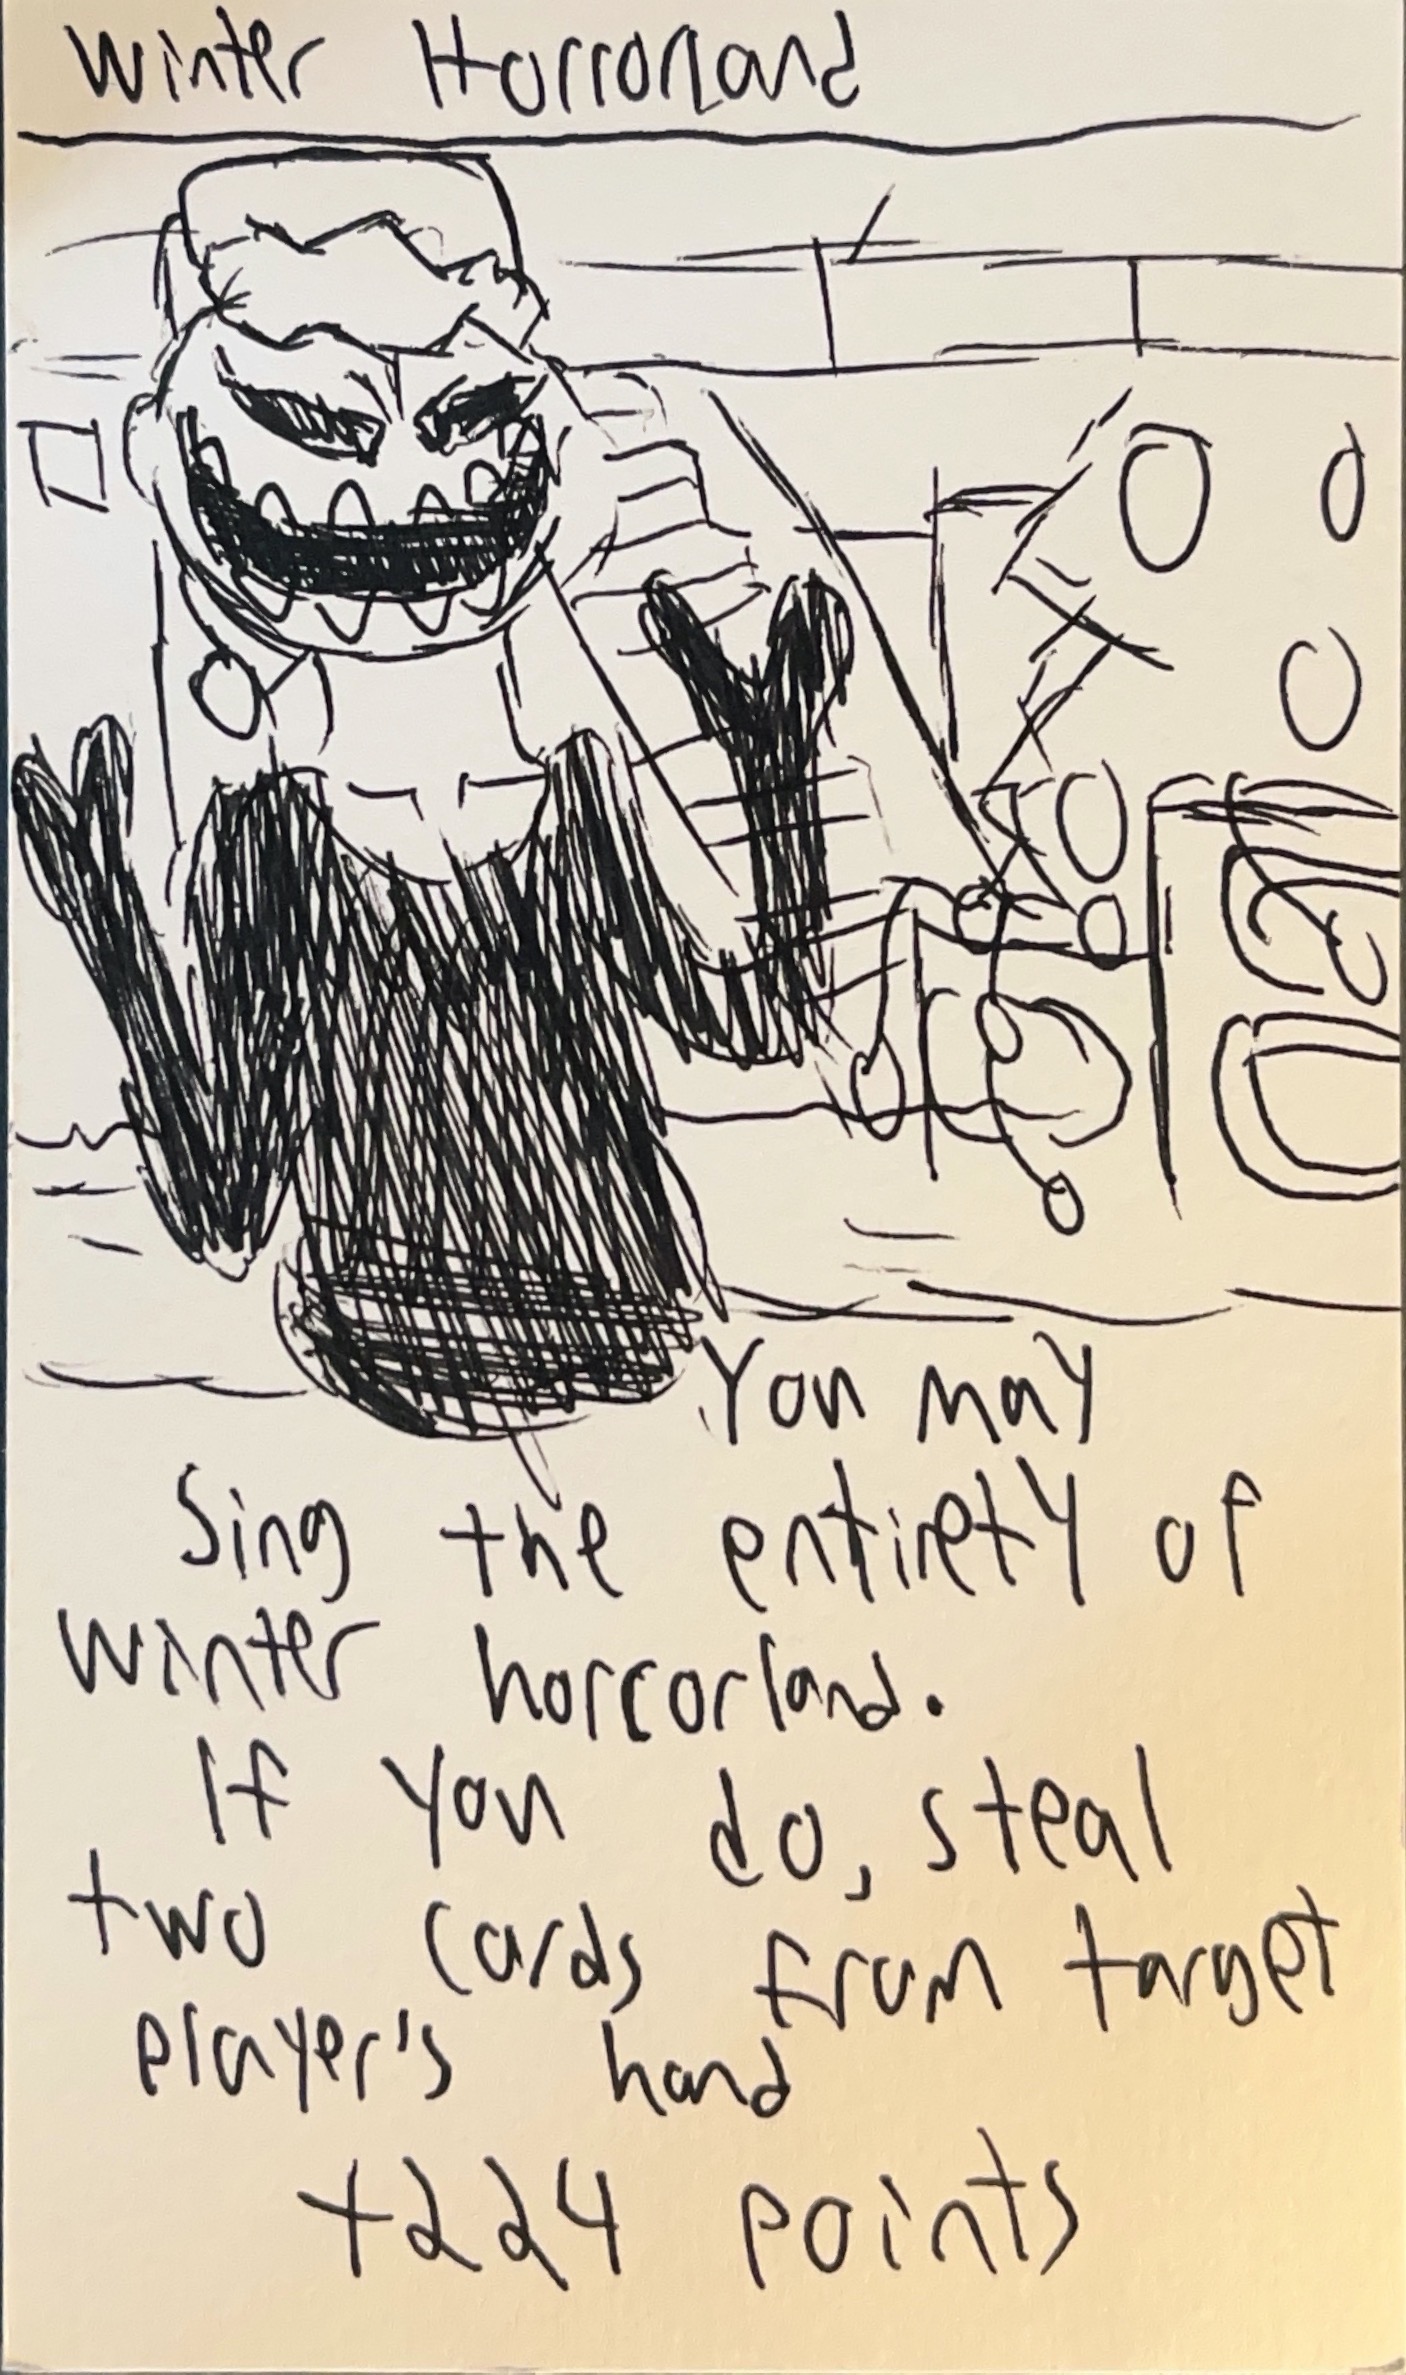 Winter Horrorland
You may
Sing the entirety of
winter horrorland.
If you do, steal
two cards from target
player's hand
+224 points